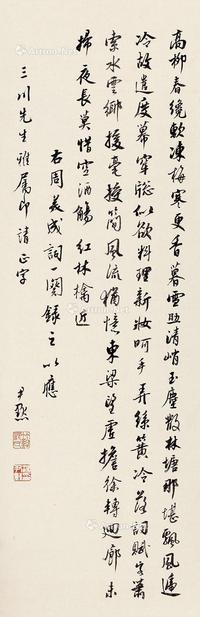 高柳春纔軟凍梅寒更香暮雪助清峭玉塵散林塘那堪飄風遞
冷故遣度幕穿窗似欲料理新妝呵手弄絲簧冷落詞賦客蕭
索水雲鄉援毫授簡風流猶憶東梁望虛檐徐轉迴廊未
掃夜長莫惜空酒觴 紅林擒近
右周美成詞一闋錄之以應
三川先生雅屬即請正字
尹默